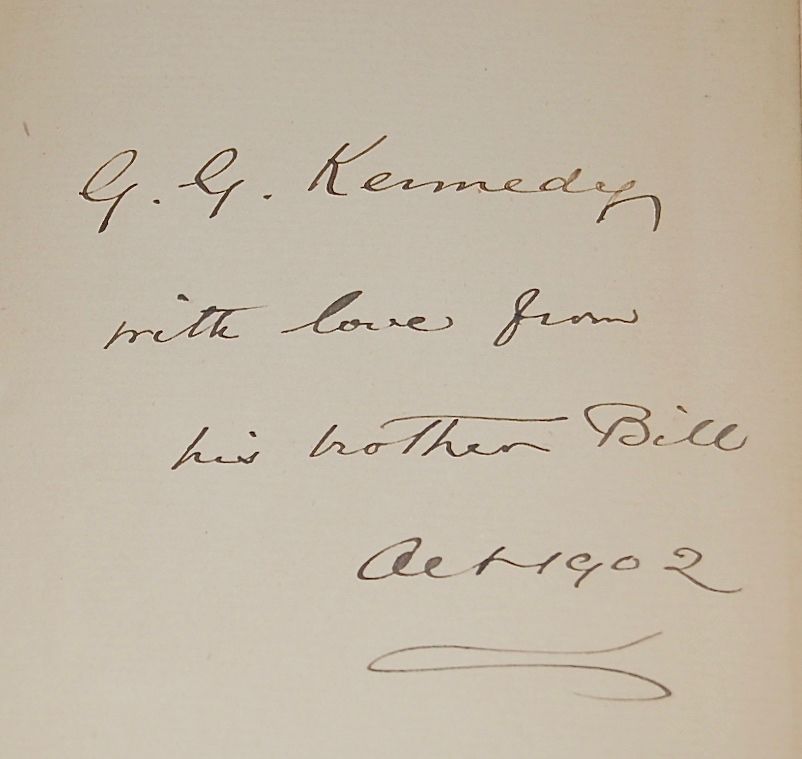 G. G. Kennedy
with love from
his brother Bill
Oct 1902